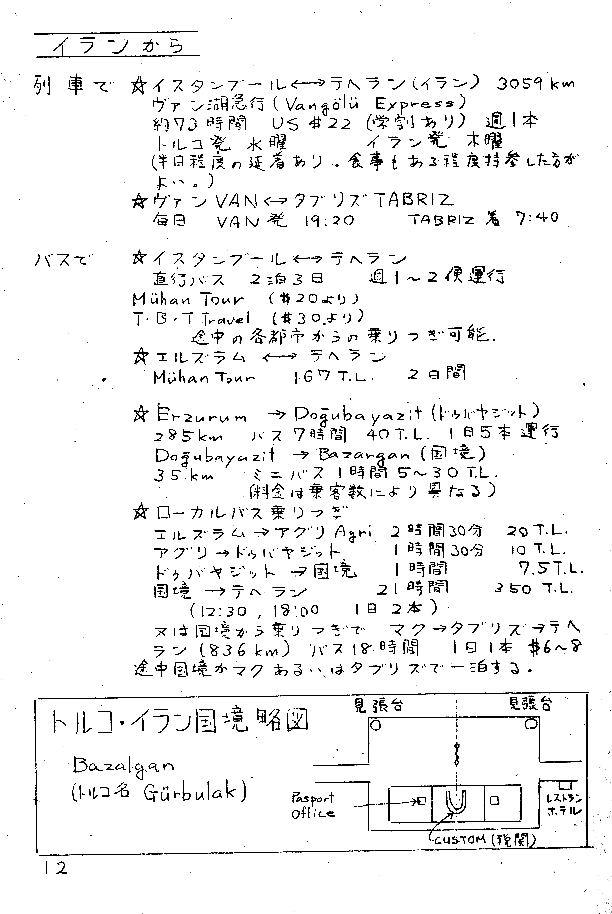 イランから
列車で ☆イスタンブール⟷テヘラン(イラン) 3059km
ヴァン湖急行(Vangölü Express)
約73時間 US$22 (学割あり) 週1本
トルコ発 水曜 イラン発 木曜
(半日程度の延着あり。食事もある程度持参した方が
よい。)
☆ヴァンVAN⟷タブリズTABRIZ
毎日 VAN発 19:20 TABRIZ着 7:40
バスで ☆イスタンブール⟷テヘラン
直行バス 2泊3日 週1~2便運行
Mühan Tour ($20より)
T・B・T Travel ($30より)
途中の各都市からの乗りつぎ可能.
☆エルズラム ⟷ テヘラン
Mühan Tour 167T.L. 2日間
☆Erzurum → Doğubayazit(ドゥバヤジット)
285km バス7時間 40T.L. 1日5本運行
Doğubayazit → Bazargan(国境)
35km ミニバス1時間5~30T.L.
(料金は乗客数により異なる)
☆ローカルバス乗りつぎ
エルズラム→アグリ Agri 2時間30分 20T.L.
アグリ→ドゥバヤジット 1時間30分 10T.L.
ドゥバヤジット→国境 1時間 7.5T.L.
国境→テヘラン 21時間 350T.L.
(12:30, 18:00 1日2本)
又は国境から乗りつぎで マク→タブリズ→テヘ
ラン(836km) バス18時間 1日1本 $6~8
途中国境かマクあるいはタブリズで一泊する。
トルコ・イラン国境略図
見張台 見張台
Bazalgan
(トルコ名 Gürbulak)
Pasport
office
レストラン
ホテル
CUSTOM(税関)
12